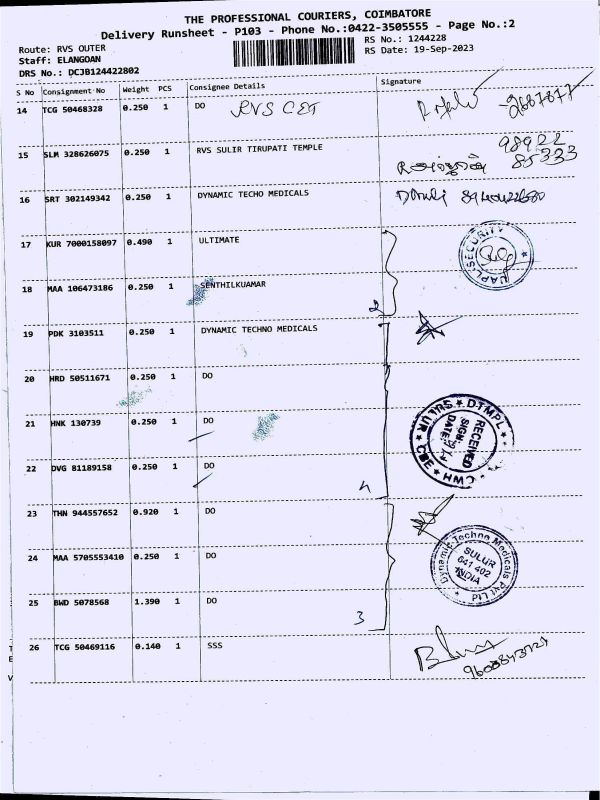 THE PROFESSIONAL COURIERS, COIMBATORE
Delivery Runsheet - P103 - Phone No.:0422-3505555 - Page No.:2
Route: RVS OUTER
RS No.: 1244228
Staff: ELANGOAN
RS Date: 19-Sep-2023
DRS No.: DCJB124422802
S No Consignment No Weight PCS Consignee Details Signature
14 TCG 50468328 0.250 1 DO RVS CET
15 SLM 328626075 0.250 1 RVS SULIR TIRUPATI TEMPLE 98922 85333
16 SRT 302149342 0.250 1 DYNAMIC TECHO MEDICALS
17 KUR 7000158097 0.490 1 ULTIMATE
SECURITY
18 MAA 106473186 0.250 1 SENTHILKUAMAR
2
19 PDK 3103511 0.250 1 DYNAMIC TECHNO MEDICALS
20 HRD 50511671 0.250 1 DO
21 HNK 130739 0.250 1 DO
DTMPL CWH CBE SULUR
RECEIVED
SIGN
DATE
22 DVG 81189158 0.250 1 DO
4
23 THN 944557652 0.920 1 DO
24 MAA 5705553410 0.250 1 DO
Dynamic Techno Medicals Pvt Ltd
SULUR
641 402
INDIA
25 BWD 5078568 1.390 1 DO
3
26 TCG 50469116 0.140 1 SSS